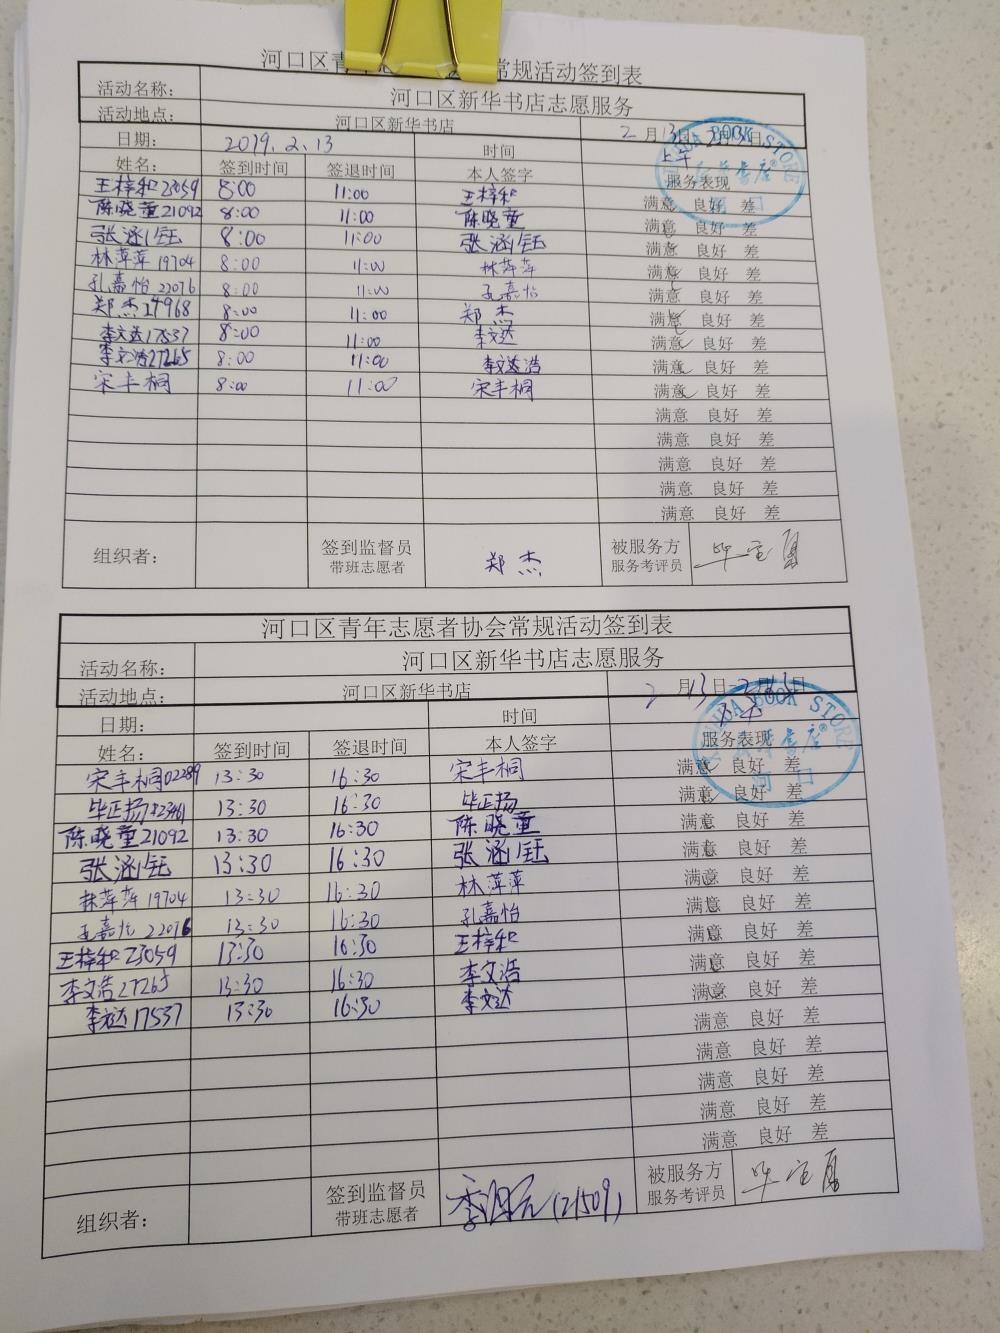 河口区青年 常规活动签到表
活动名称： 河口区新华书店志愿服务
活动地点： 河口区新华书店 2月13日
日期： 2019.2.13 时间 上午
姓名： 签到时间 签退时间 本人签字 服务表现
王梓和23059 8:00 11:00 王梓和 满意 良好 差
陈晓童21092 8:00 11:00 陈晓童 满意 良好 差
张涵钰 8:00 11:00 张涵钰 满意 良好 差
林萍萍 19704 8:00 11:00 林萍萍 满意 良好 差
孔嘉怡 22076 8:00 11:00 孔嘉怡 满意 良好 差
郑杰14968 8:00 11:00 郑杰 满意 良好 差
李文达17537 8:00 11:00 李文达 满意 良好 差
李文浩27265 8:00 11:00 李文浩 满意 良好 差
宋丰桐 8:00 11:00 宋丰桐 满意 良好 差
满意 良好 差
满意 良好 差
满意 良好 差
满意 良好 差
满意 良好 差
组织者： 签到监督员 带班志愿者 郑杰 被服务方 服务考评员
河口区青年志愿者协会常规活动签到表
活动名称： 河口区新华书店志愿服务
活动地点： 河口区新华书店 2月13日-2月13日
日期： 时间 下午
姓名： 签到时间 签退时间 本人签字 服务表现
宋丰桐02289 13:30 16:30 宋丰桐 满意 良好 差
毕正扬 13:30 16:30 毕正扬 满意 良好 差
陈晓童21092 13:30 16:30 陈晓童 满意 良好 差
张涵钰 13:30 16:30 张涵钰 满意 良好 差
林萍萍 19704 13:30 16:30 林萍萍 满意 良好 差
孔嘉怡 22076 13:30 16:30 孔嘉怡 满意 良好 差
王梓和23059 13:30 16:30 王梓和 满意 良好 差
李文浩27265 13:30 16:30 李文浩 满意 良好 差
李文达17537 13:30 16:30 李文达 满意 良好 差
满意 良好 差
满意 良好 差
满意 良好 差
满意 良好 差
满意 良好 差
组织者： 签到监督员 带班志愿者 (21509) 被服务方 服务考评员